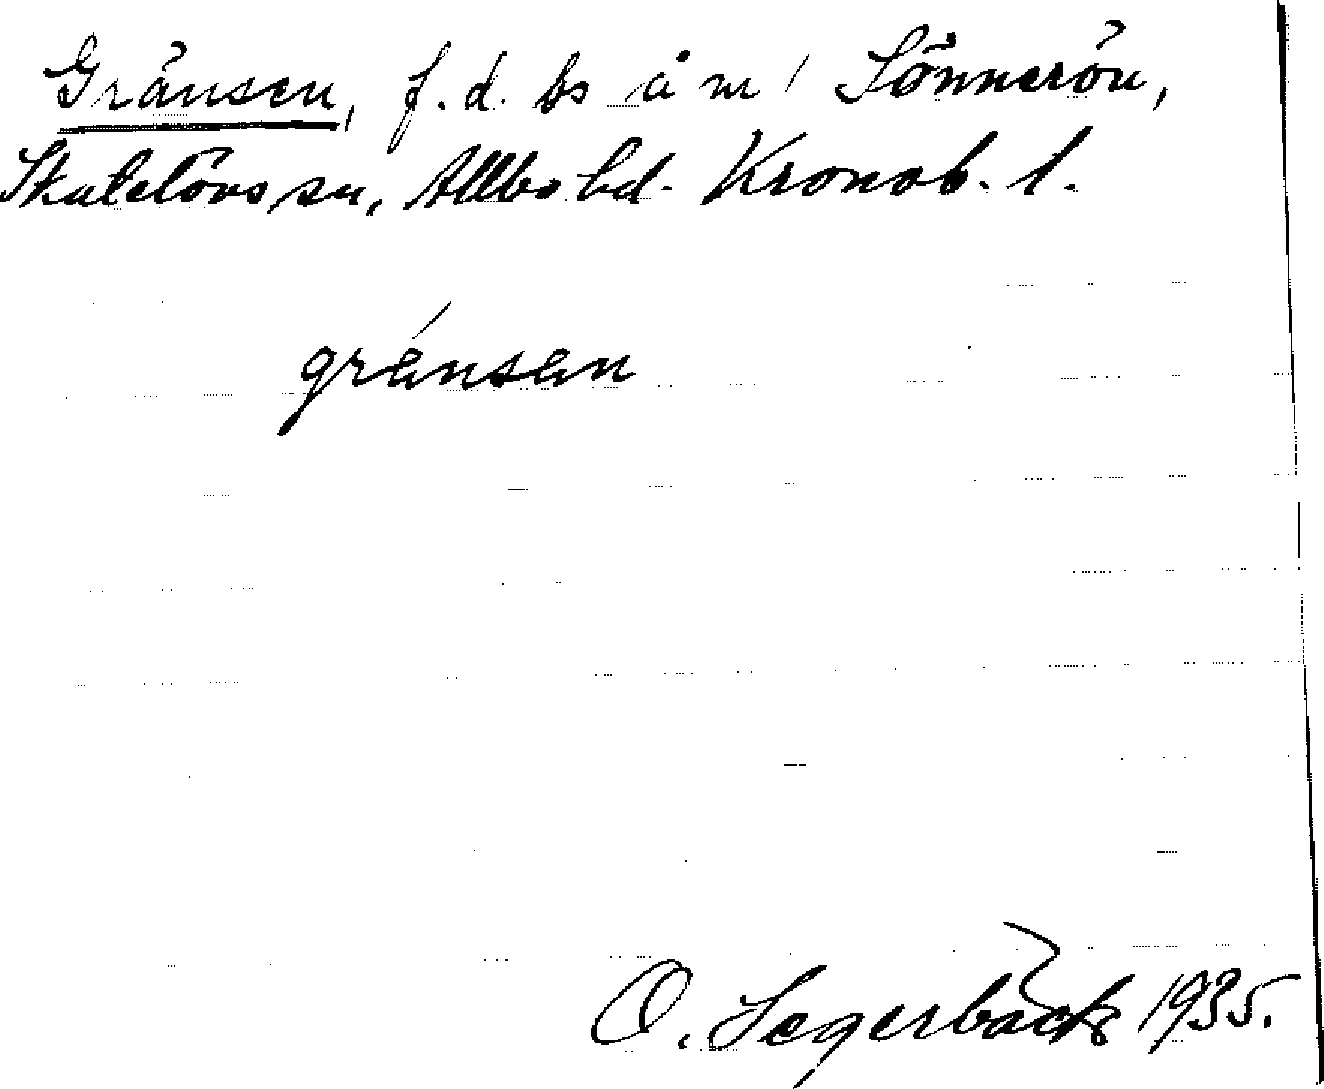 Gränsen, f.d. bs å m / Sönnerön,
Skatelövs sn, Allbo hd. Kronob. l.
gränsan
O. Segerbäck 1935.